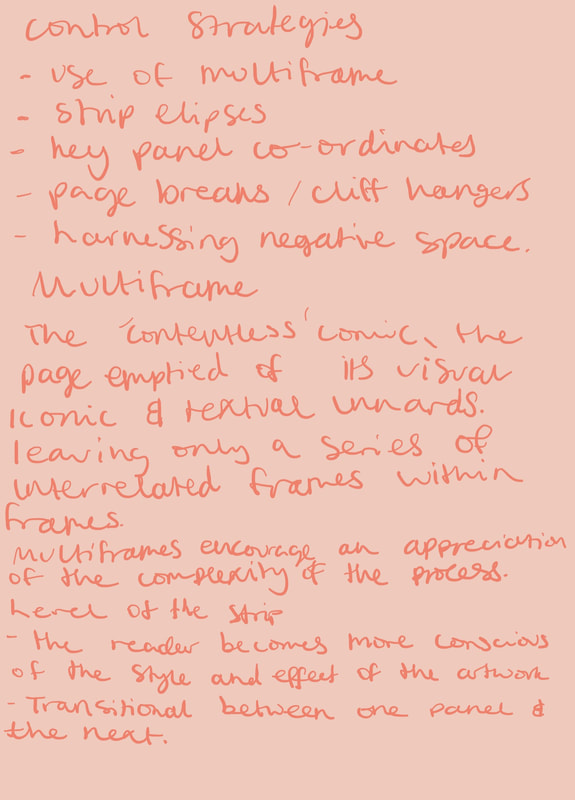 Control Strategies
- use of multiframe
- strip elipses
- key panel co-ordinates
- page breaks / cliff hangers
- harnessing negative space.
Multiframe
The 'contentless' comic, the
page emptied of its visual
iconic & textual innards.
leaving only a series of
interrelated frames within
frames.
Multiframes encourage an appreciation
of the complexity of the process.
Level of the strip
- the reader becomes more conscious
of the style and effect of the artwork
- Transitional between one panel &
the next.